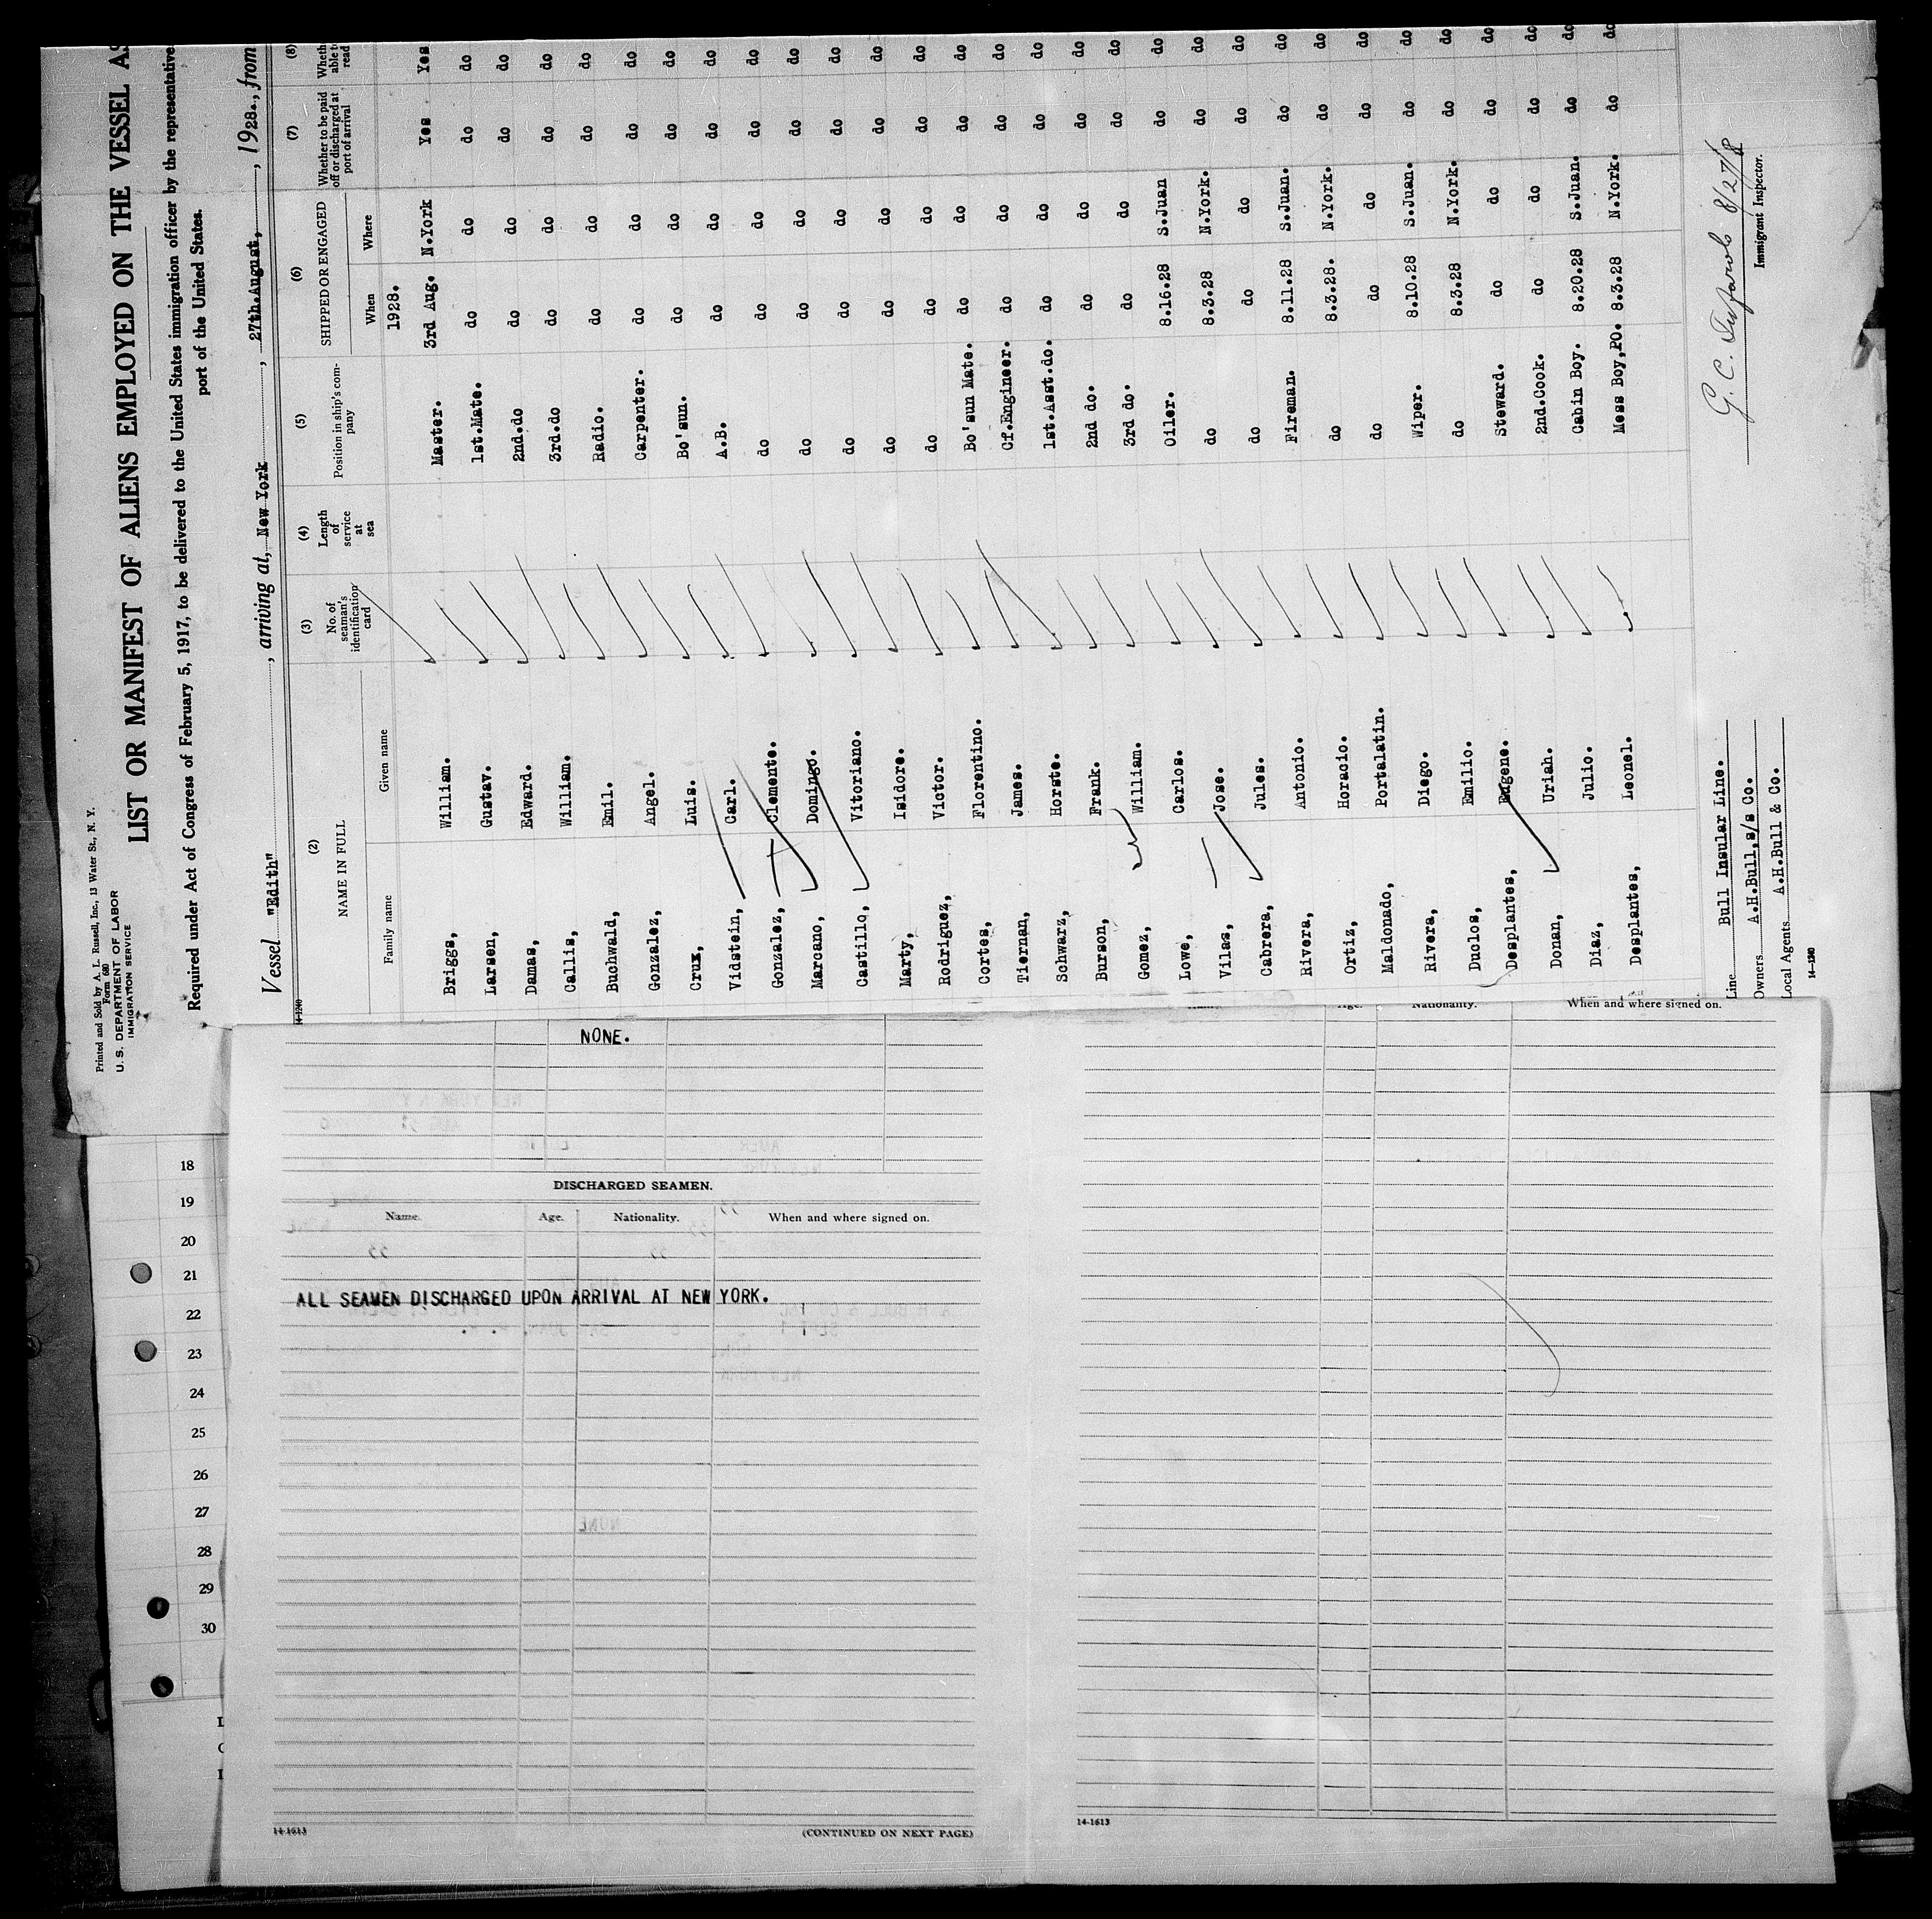 Printed and Sold by A. L. Russell, Inc., 13 Water St., N. Y.
Form 680
U. S. DEPARTMENT OF LABOR
IMMIGRATION SERVICE
LIST OR MANIFEST OF ALIENS EMPLOYED ON THE VESSEL AS
Required under Act of Congress of February 5, 1917, to be delivered to the United States immigration officer by the representative
port of the United States.
Vessel "Edith", arriving at, New York, 27th.August, 1928., from
14-1240
(2) (3) (4) (5) (6) (7) (8)
NAME IN FULL No. of seaman's identification card Length of service at sea Position in ship's company SHIPPED OR ENGAGED Whether to be paid off or discharged at port of arrival Wheth able to read
Family name Given name When Where
1928.
Briggs, William. Master. 3rd Aug. N.York Yes Yes
Larsen, Gustav. 1st.Mate. do do do do
Damas, Edward. 2nd.do do do do do
Callis, William. 3rd.do do do do do
Buchwald, Emil. Radio. do do do do
Gonzalez, Angel. Carpenter. do do do do
Crux, Luis. Bo'sun. do do do do
Vidstein, Carl. A.B. do do do do
Gonzalez, Clemente. do do do do do
Marcano, Domingo. do do do do do
Castillo, Vitoriano. do do do do do
Marty, Isidore. do do do do do
Rodriguez, Victor. do do do do do
Cortes, Florentino. Bo'sun Mate. do do do do
Tiernan, James. Cf.Engineer. do do do do
Schwarz, Horste. 1st.Asst.do. do do do do
Burson, Frank. 2nd do. do do do do
Gomez, William. 3rd do. do do do do
Lowe, Carlos. Oiler. 8.16.28 S.Juan do do
Vilas, Jose. do 8.3.28 N.York. do do
Cabrera, Jules. do do do do do
Rivera, Antonio. Fireman. 8.11.28 S.Juan. do do
Ortiz, Horacio. do 8.3.28. N.York. do do
Maldonado, Portalatin. do do do do do
Rivera, Diego. Wiper. 8.10.28 S.Juan. do do
Duclos, Emilio. do 8.3.28 N.York. do do
Desplantes, Eugene. Steward. do do do do
Donan, Uriah. 2nd.Cook. do do do do
Diaz, Julio. Cabin Boy. 8.20.28 S.Juan. do do
Desplantes, Leonel. Mess Boy,PO. 8.3.28 N.York. do do
Line Bull Insular Line.
Owners A.H.Bull,s/s Co.
Local Agents A.H.Bull & Co.
14-1240
G. C. 8/27/28
Immigrant Inspector.
NONE.
DISCHARGED SEAMEN.
Name. Age. Nationality. When and where signed on.
ALL SEAMEN DISCHARGED UPON ARRIVAL AT NEW YORK.
14-1613
(CONTINUED ON NEXT PAGE)
Age. Nationality. When and where signed on.
14-1613
18
19
20
21
22
23
24
25
26
27
28
29
30